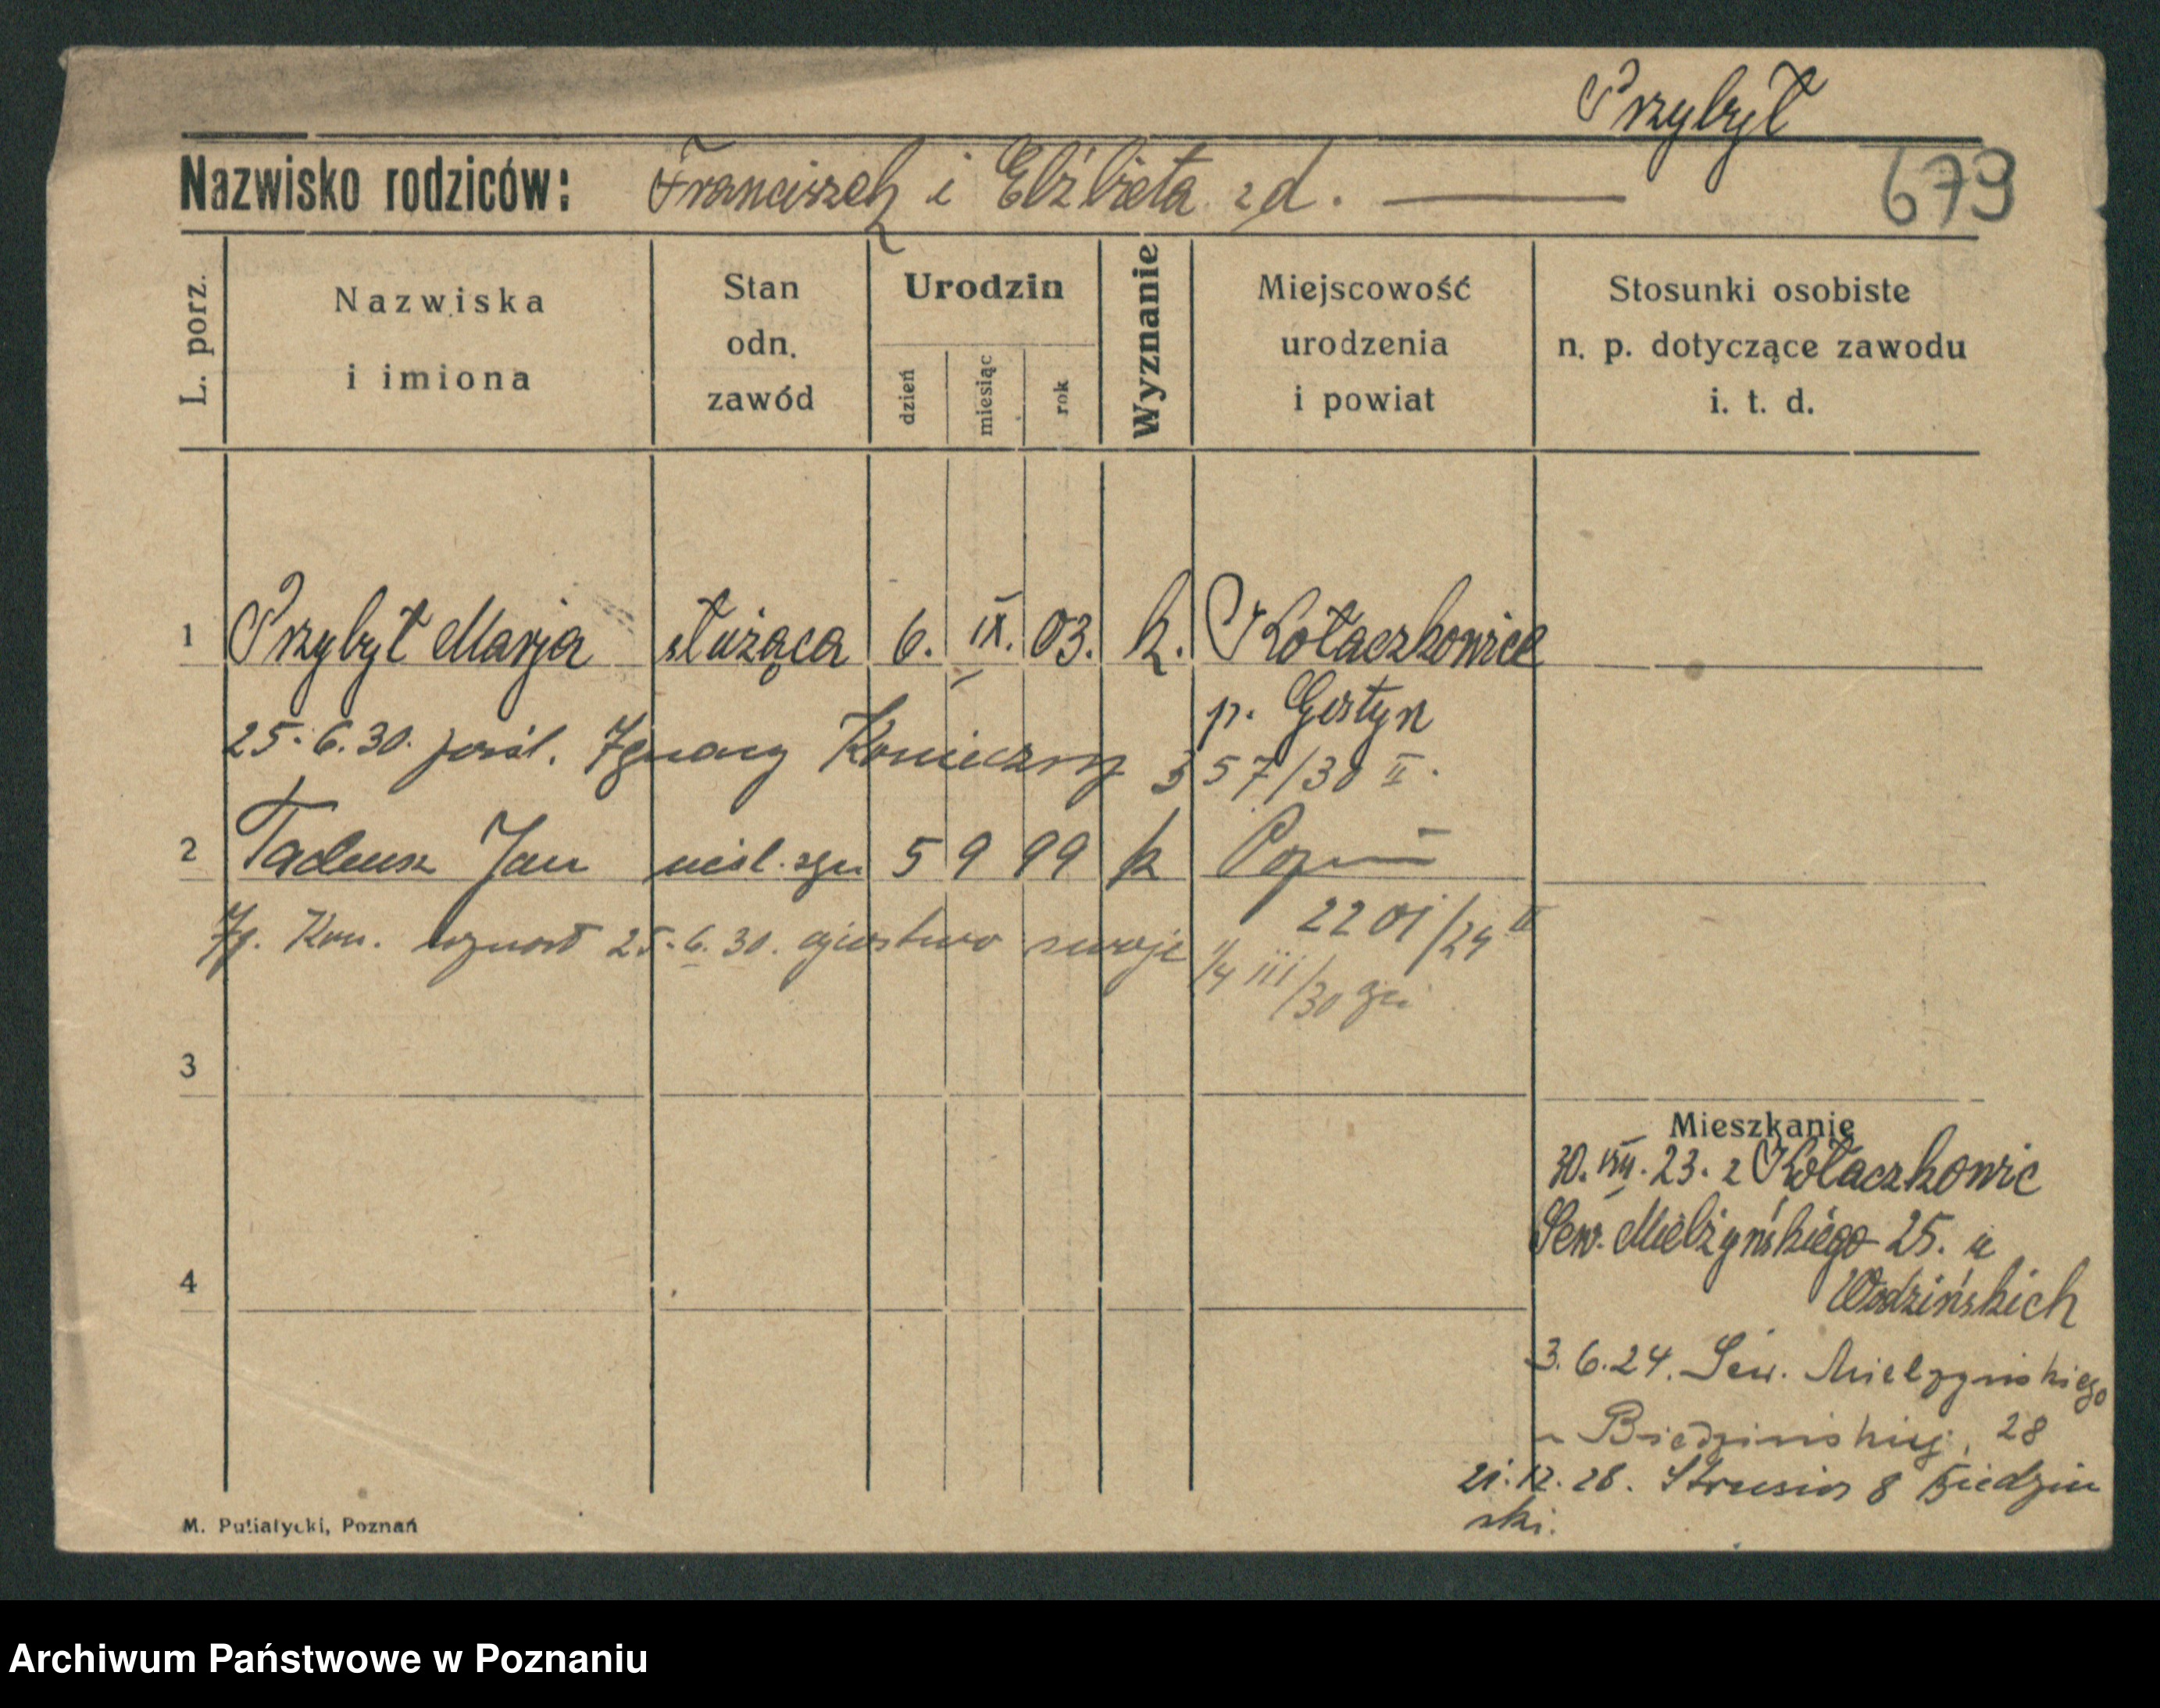 Przybył
Nazwisko rodziców: Franciszek i Elżbieta zd. —
679
L. porz.
Nazwiska i imiona
Stan odn. zawód
Urodzin
dzień miesiąc rok
Wyznanie
Miejscowość urodzenia i powiat
Stosunki osobiste n. p. dotyczące zawodu i. t. d.
1 Przybył Marja służąca 6. IX. 03. k. Kołaczkowice
p. Gostyń
25.6.30. pośl. Ignacy Konieczny 357/30 II.
2 Tadeusz Jan 5 9 k Poznań
Ig. Kon. uznał 25.6.30. ojcostwo swoje
III/30
3
4
Mieszkanie
30. VIII. 23. z Kołaczkowic
Sew. Mielżyńskiego 25. u
Wodzińskich
3.6.24. Sew. Mielżyńskiego
28
21.12.28. Strusia 8 Biedziń
ski.
M. Putiatycki, Poznań
Archiwum Państwowe w Poznaniu